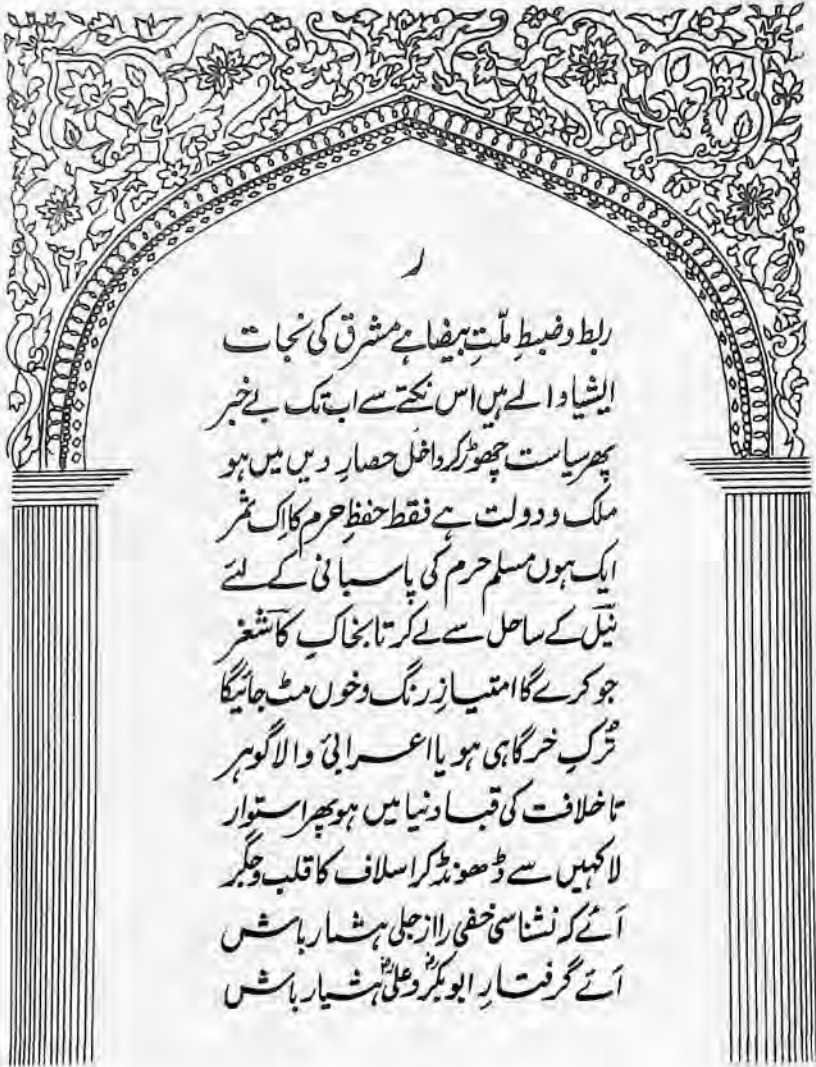 ر
ربط و ضبطِ ملّتِ بیضا ہے مشرق کی نجات
ایشیا والے ہیں اس نکتے سے اب تک بے خبر
پھر سیاست چھوڑ کر داخل حصارِ دیں میں ہو
ملک و دولت ہے فقط حفظِ حرم کا اِک ثمر
ایک ہوں مسلم حرم کی پاسبانی کے لئے
نیل کے ساحل سے لے کر تا بخاکِ کاشغر
جو کرے گا امتیازِ رنگ و خوں مٹ جائیگا
تُرکِ خرگاہی ہو یا اعرابیٔ والا گوہر
تا خلافت کی قبا دنیا میں ہو پھر استوار
لا کہیں سے ڈھونڈ کر اسلاف کا قلب و جگر
اَئے کہ نشناسی خفی را از جلی ہشیار باش
اَئے گرفتارِ ابوبکرؓ و علیؓ ہشیار باش